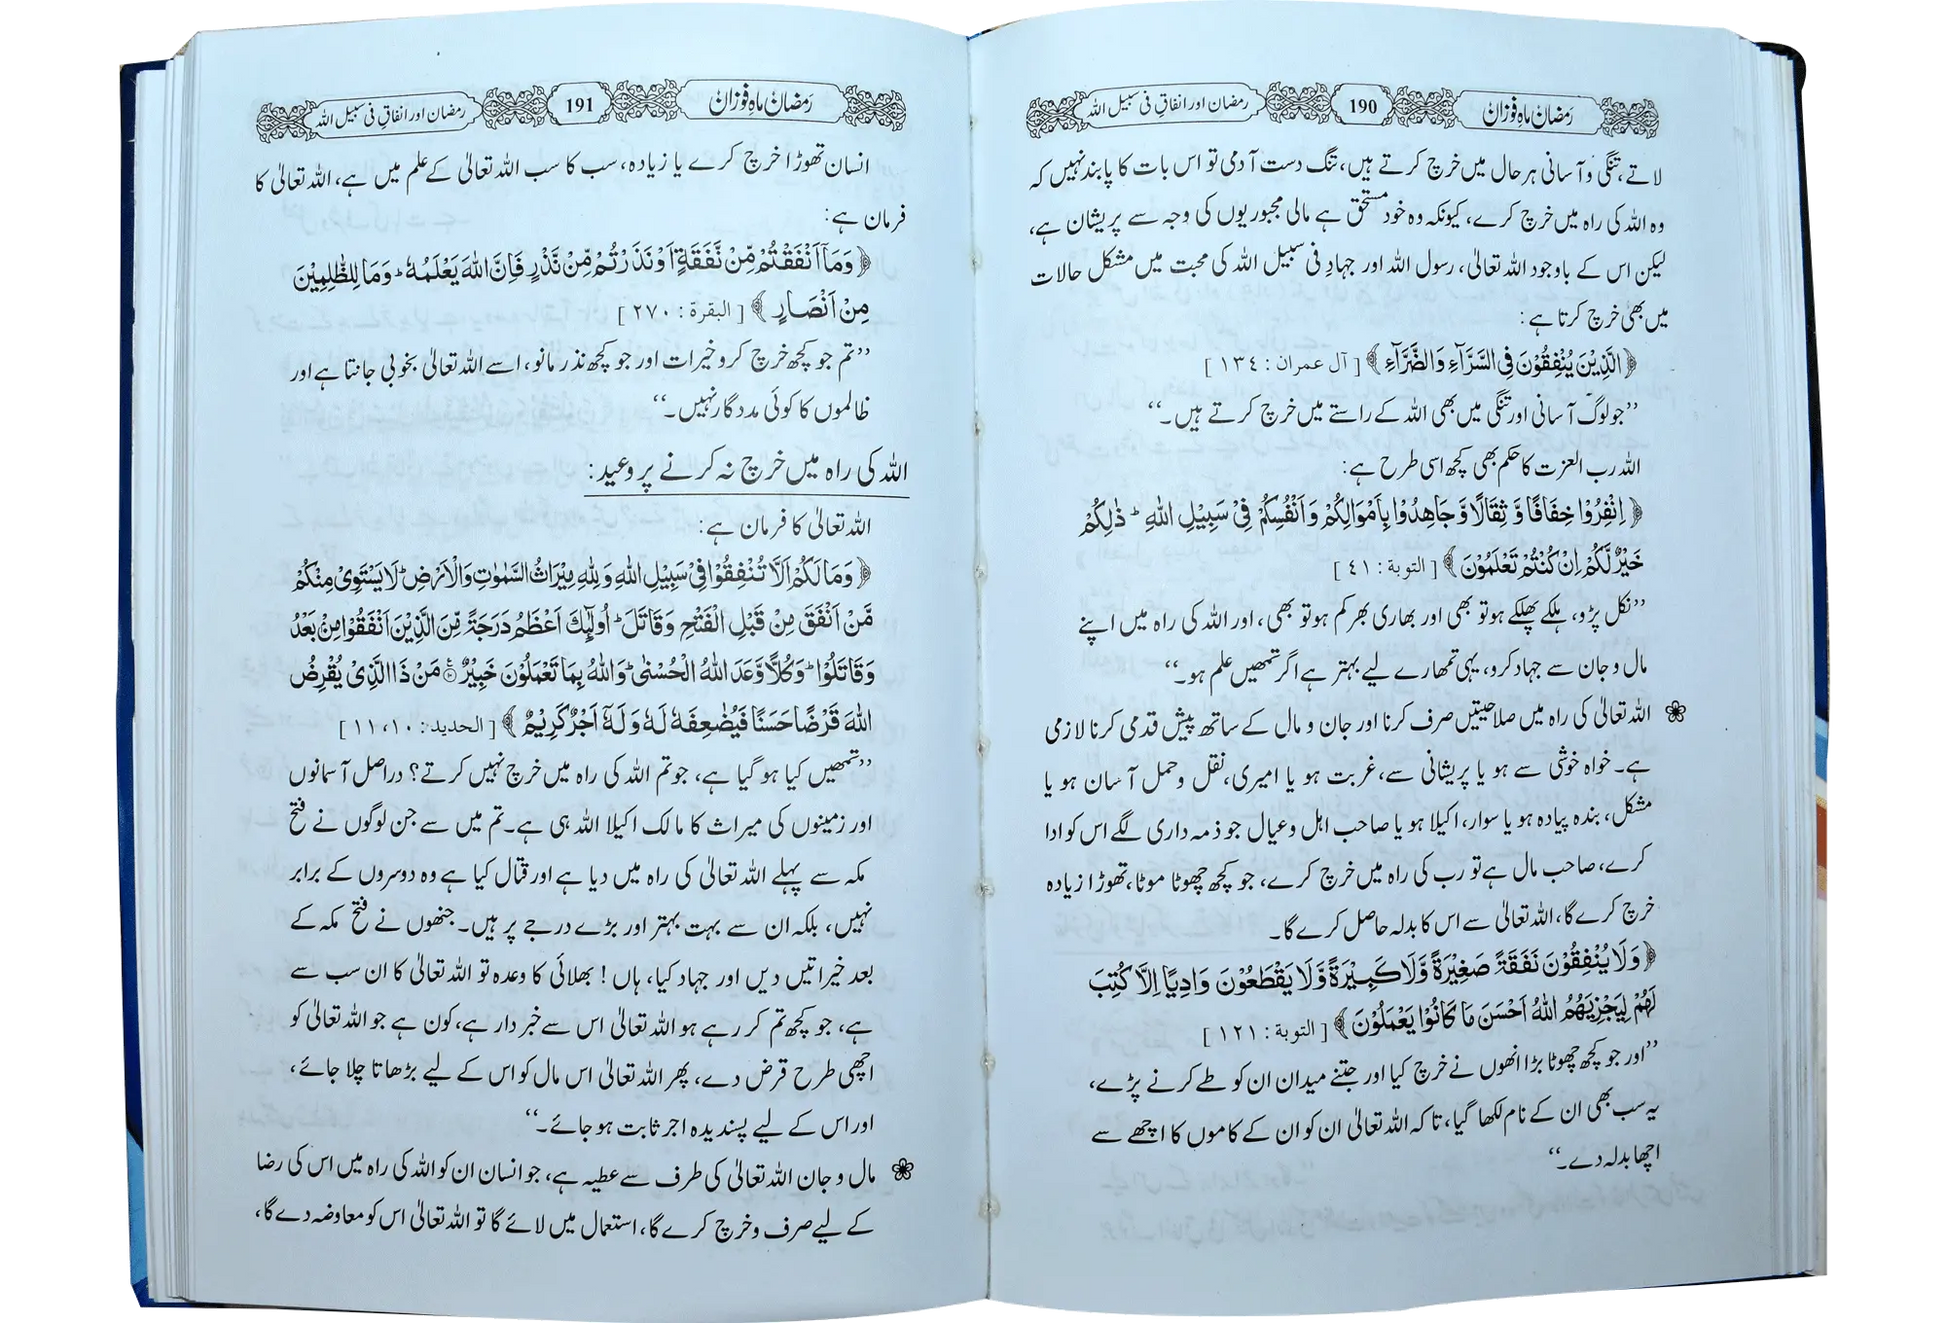 رمضان ماہِ فوزاں 190 رمضان اور انفاقِ فی سبیل اللہ
لاتے، تنگی و آسانی ہر حال میں خرچ کرتے ہیں، تنگ دست آدمی تو اس بات کا پابند نہیں کہ
وہ اللہ کی راہ میں خرچ کرے، کیونکہ وہ خود مستحق ہے مالی مجبوریوں کی وجہ سے پریشان ہے،
لیکن اس کے باوجود اللہ تعالیٰ، رسول اللہ اور جہادِ فی سبیل اللہ کی محبت میں مشکل حالات
میں بھی خرچ کرتا ہے:
﴿ الَّذِيْنَ يُنْفِقُوْنَ فِي السَّرَّآءِ وَالضَّرَّآءِ ﴾ [ آل عمران : ١٣٤ ]
’’جو لوگ آسانی اور تنگی میں بھی اللہ کے راستے میں خرچ کرتے ہیں۔‘‘
اللہ رب العزت کا حکم بھی کچھ اسی طرح ہے:
﴿ اِنْفِرُوْا خِفَافًا وَّ ثِقَالًا وَّ جَاهِدُوْا بِاَمْوَالِكُمْ وَ اَنْفُسِكُمْ فِيْ سَبِيْلِ اللّٰهِ ؕ ذٰلِكُمْ
خَيْرٌ لَّكُمْ اِنْ كُنْتُمْ تَعْلَمُوْنَ ﴾ [ التوبة : ٤١ ]
’’نکل پڑو، ہلکے پھلکے ہو تو بھی اور بھاری بھر کم ہو تو بھی، اور اللہ کی راہ میں اپنے
مال و جان سے جہاد کرو، یہی تمھارے لیے بہتر ہے اگر تمھیں علم ہو۔‘‘
❀ اللہ تعالیٰ کی راہ میں صلاحیتیں صرف کرنا اور جان و مال کے ساتھ پیش قدمی کرنا لازمی
ہے۔ خواہ خوشی سے ہو یا پریشانی سے، غربت ہو یا امیری، نقل و حمل آسان ہو یا
مشکل، بندہ پیادہ ہو یا سوار، اکیلا ہو یا صاحب اہل و عیال جو ذمہ داری لگے اس کو ادا
کرے، صاحب مال ہے تو رب کی راہ میں خرچ کرے، جو کچھ چھوٹا موٹا، تھوڑا زیادہ
خرچ کرے گا، اللہ تعالیٰ سے اس کا بدلہ حاصل کرے گا۔
﴿ وَلَا يُنْفِقُوْنَ نَفَقَةً صَغِيْرَةً وَّلَا كَبِيْرَةً وَّلَا يَقْطَعُوْنَ وَادِيًا اِلَّا كُتِبَ
لَهُمْ لِيَجْزِيَهُمُ اللّٰهُ اَحْسَنَ مَا كَانُوْا يَعْمَلُوْنَ ﴾ [ التوبة : ١٢١ ]
’’اور جو کچھ چھوٹا بڑا انھوں نے خرچ کیا اور جتنے میدان ان کو طے کرنے پڑے،
یہ سب بھی ان کے نام لکھا گیا، تاکہ اللہ تعالیٰ ان کو ان کے کاموں کا اچھے سے
اچھا بدلہ دے۔‘‘
رمضان ماہِ فوزاں 191 رمضان اور انفاقِ فی سبیل اللہ
انسان تھوڑا خرچ کرے یا زیادہ، سب کا سب اللہ تعالیٰ کے علم میں ہے، اللہ تعالیٰ کا
فرمان ہے:
﴿ وَمَآ اَنْفَقْتُمْ مِّنْ نَّفَقَةٍ اَوْ نَذَرْتُمْ مِّنْ نَّذْرٍ فَاِنَّ اللّٰهَ يَعْلَمُهٗ ؕ وَمَا لِلظّٰلِمِيْنَ
مِنْ اَنْصَارٍ ﴾ [ البقرة : ٢٧٠ ]
’’تم جو کچھ خرچ کرو خیرات اور جو کچھ نذر مانو، اسے اللہ تعالیٰ بخوبی جانتا ہے اور
ظالموں کا کوئی مددگار نہیں۔‘‘
اللہ کی راہ میں خرچ نہ کرنے پر وعید:
اللہ تعالیٰ کا فرمان ہے:
﴿ وَمَا لَكُمْ اَلَّا تُنْفِقُوْا فِيْ سَبِيْلِ اللّٰهِ وَلِلّٰهِ مِيْرَاثُ السَّمٰوٰتِ وَالْاَرْضِ ؕ لَا يَسْتَوِيْ مِنْكُمْ
مَّنْ اَنْفَقَ مِنْ قَبْلِ الْفَتْحِ وَ قَاتَلَ ؕ اُولٰٓئِكَ اَعْظَمُ دَرَجَةً مِّنَ الَّذِيْنَ اَنْفَقُوْا مِنْ بَعْدُ
وَ قَاتَلُوْا ؕ وَ كُلًّا وَّعَدَ اللّٰهُ الْحُسْنٰى ؕ وَاللّٰهُ بِمَا تَعْمَلُوْنَ خَبِيْرٌ مَنْ ذَا الَّذِيْ يُقْرِضُ
اللّٰهَ قَرْضًا حَسَنًا فَيُضٰعِفَهٗ لَهٗ وَ لَهٗٓ اَجْرٌ كَرِيْمٌ ﴾ [ الحديد: ١٠، ١١ ]
’’تمھیں کیا ہو گیا ہے، جو تم اللہ کی راہ میں خرچ نہیں کرتے؟ دراصل آسمانوں
اور زمینوں کی میراث کا مالک اکیلا اللہ ہی ہے۔ تم میں سے جن لوگوں نے فتح
مکہ سے پہلے اللہ تعالیٰ کی راہ میں دیا ہے اور قتال کیا ہے وہ دوسروں کے برابر
نہیں، بلکہ ان سے بہت بہتر اور بڑے درجے پر ہیں۔ جنھوں نے فتح مکہ کے
بعد خیراتیں دیں اور جہاد کیا، ہاں! بھلائی کا وعدہ تو اللہ تعالیٰ کا ان سب سے
ہے، جو کچھ تم کر رہے ہو اللہ تعالیٰ اس سے خبردار ہے، کون ہے جو اللہ تعالیٰ کو
اچھی طرح قرض دے، پھر اللہ تعالیٰ اس مال کو اس کے لیے بڑھاتا چلا جائے،
اور اس کے لیے پسندیدہ اجر ثابت ہو جائے۔‘‘
❀ مال و جان اللہ تعالیٰ کی طرف سے عطیہ ہے، جو انسان ان کو اللہ کی راہ میں اس کی رضا
کے لیے صرف و خرچ کرے گا، استعمال میں لائے گا تو اللہ تعالیٰ اس کو معاوضہ دے گا،